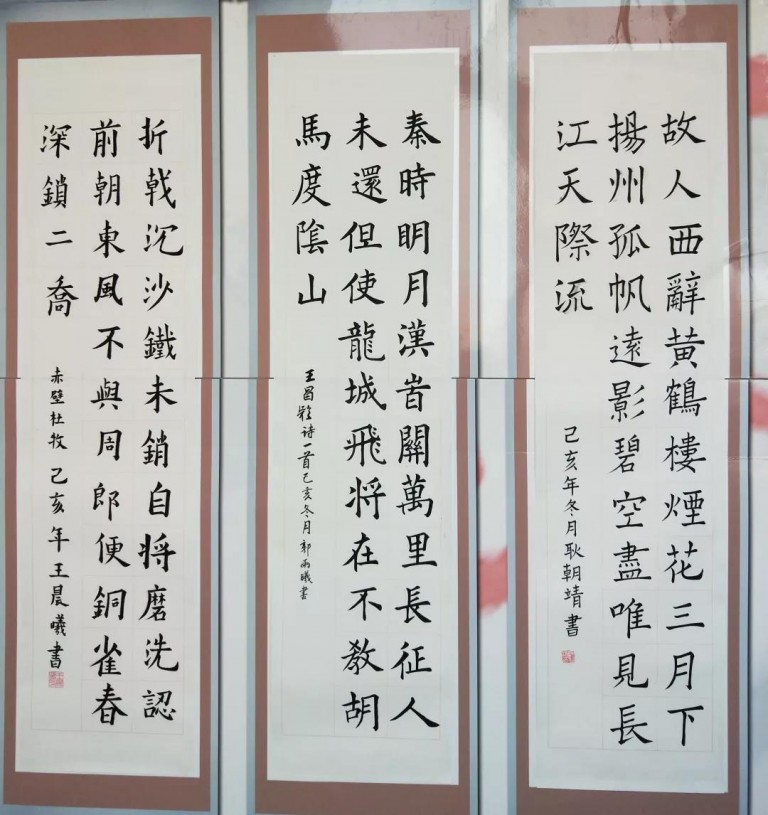 故人西辭黄鶴樓煙花三月下
揚州孤帆遠影碧空盡唯見長
江天際流
己亥年冬月耿朝靖書
秦時明月漢旹關萬里長征人
未還但使龍城飛将在不教胡
馬度陰山
王昌齡诗一首己亥冬月郭雨曦書
折戟沉沙鐵未銷自将磨洗認
前朝東風不與周郎便銅雀春
深鎖二喬
赤壁杜牧 己亥年王晨曦書